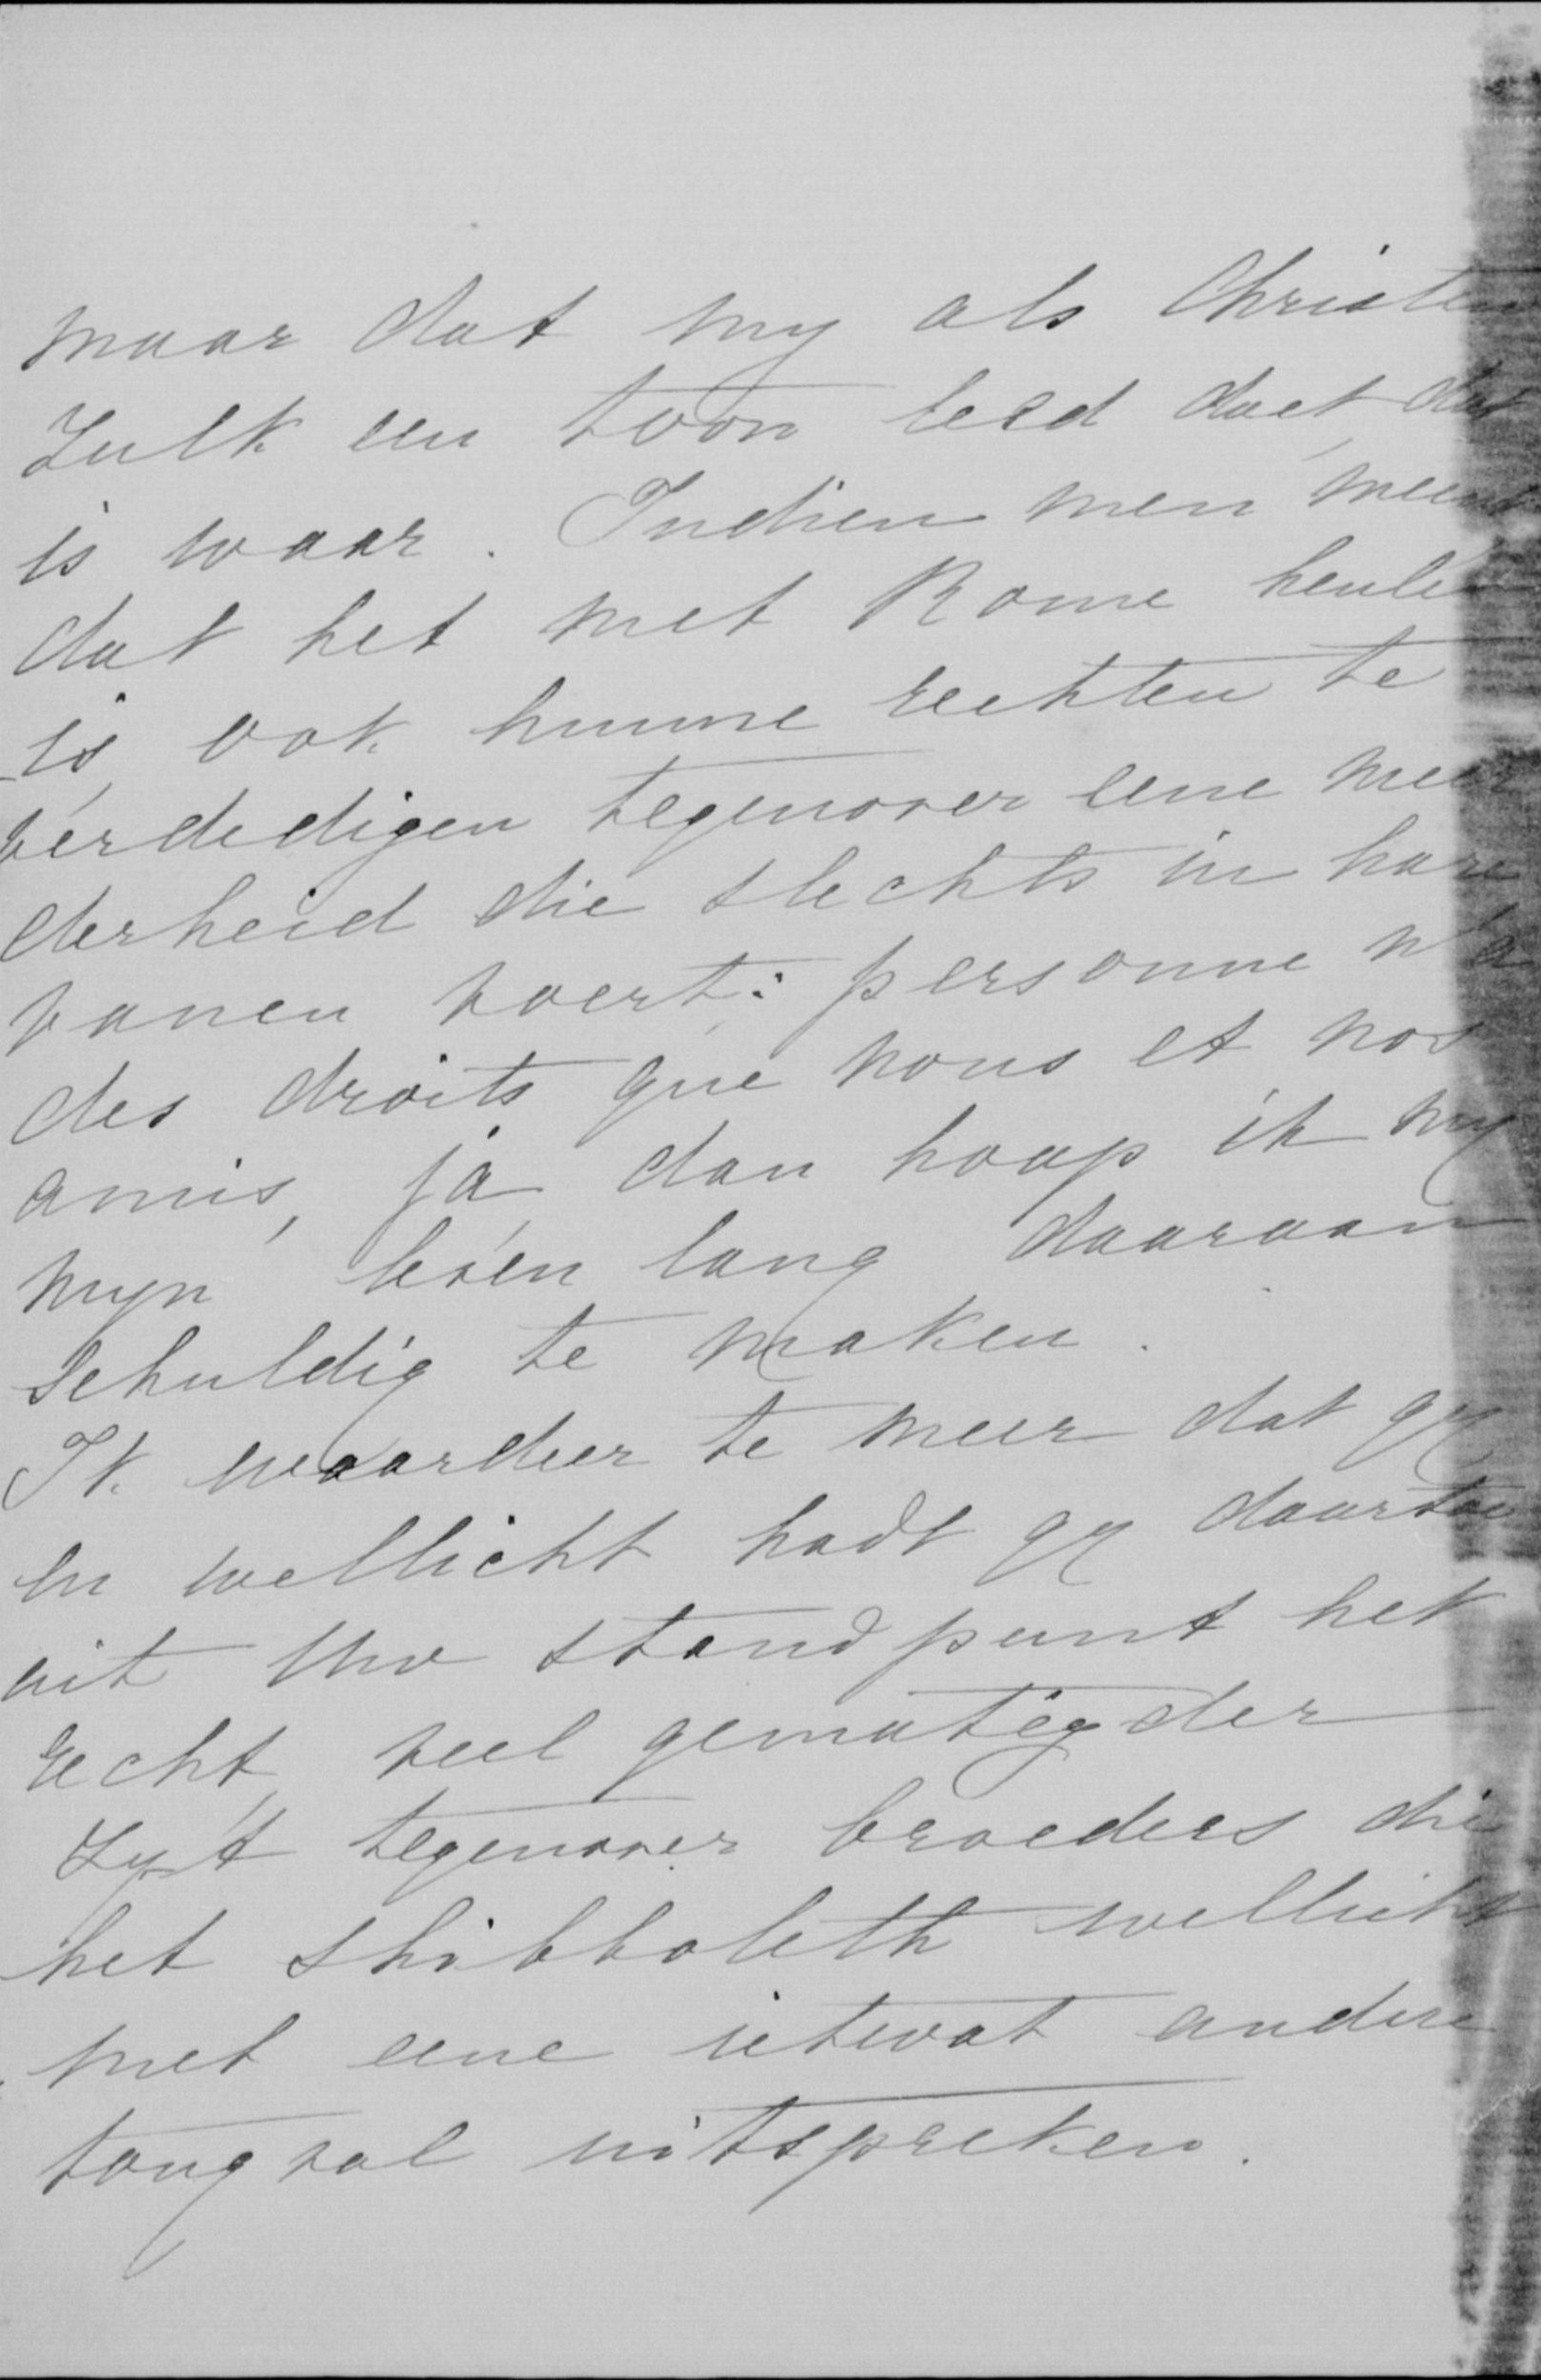 maar dat my als Christen
zulk een toon leed doet, dat
is waar. Indien men meent
dat het met Rome heulen
is, ook hunne rechten te
verdedigen tegenover eene meer
derheid die slechts in hare
vanen voert: personne n'a
des droits que nous et nos
amis, ja, dan hoop ik my
myn leven lang daaraan
schuldig te maken.
Ik waardeer te meer dat gy
en wellicht hadt gy daartoe
uit Uw standpunt het
recht, veel gematigder
zyt tegenover broeders die
het shibboleth wellicht
met eene ietwat andere
tongval uitspreken.